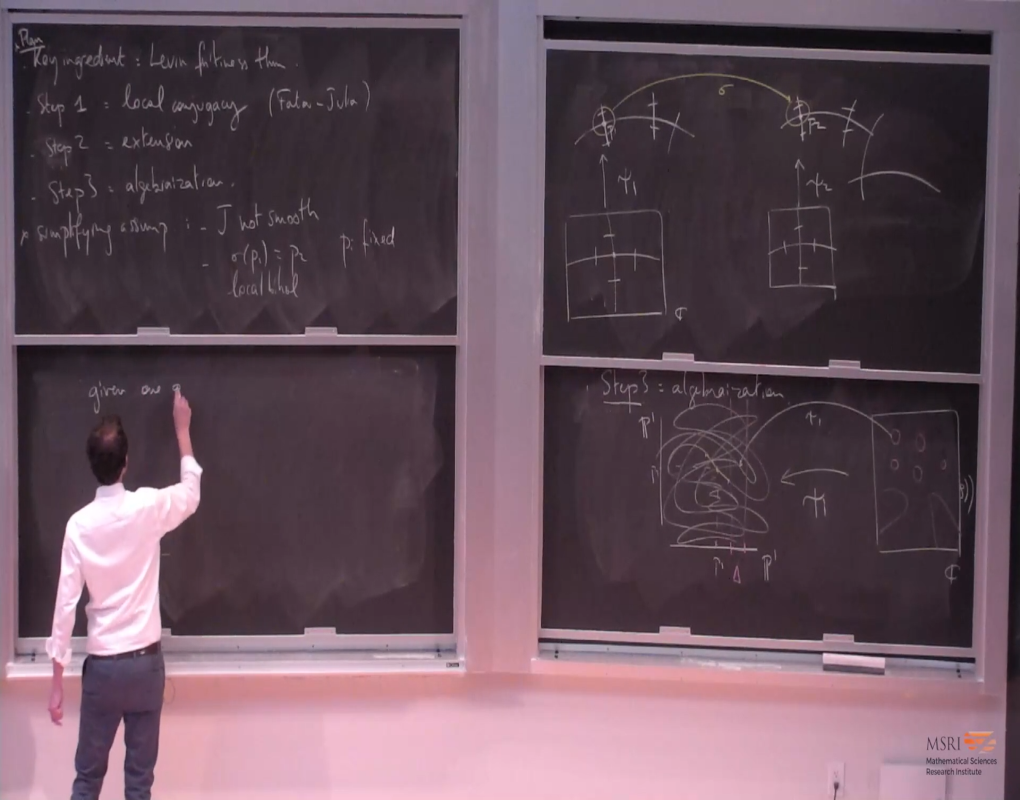 Plan
Key ingredient : Levin finiteness thm.
. Step 1 = local conjugacy (Fatou-Julia)
. Step 2 = extension
. Step 3 = algebraization.
simplifying assump : - J not smooth
- σ(p₁) = p₂ pᵢ fixed
local hol
given one
σ
p₁
p₂
ψ₁
ψ₂
ℂ
Step 3 = algebraization
ℙ¹
p₁
Δ
ℙ¹
ℂ
MSRI
Mathematical Sciences
Research Institute